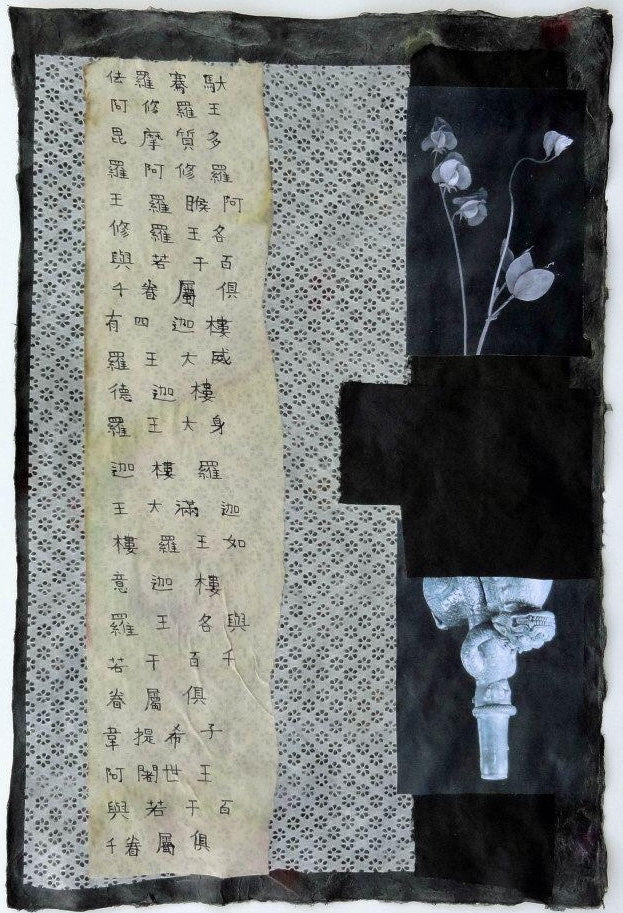 佉羅騫馱
阿修羅王
毘摩質多
羅阿修羅
王羅睺阿
修羅王各
與若干百
千眷屬俱
有四迦樓
羅王大威
德迦樓
羅王大身
迦樓羅
王大滿迦
樓羅王如
意迦樓
羅王各與
若干百千
眷屬俱
韋提希子
阿闍世王
與若干百
千眷屬俱